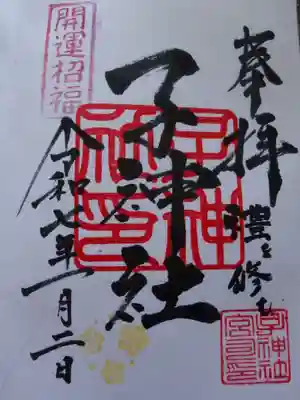 奉拝
禮を修む
子神社
開運招福
令和七年一月二日
子神社印
子神社
宮司之印